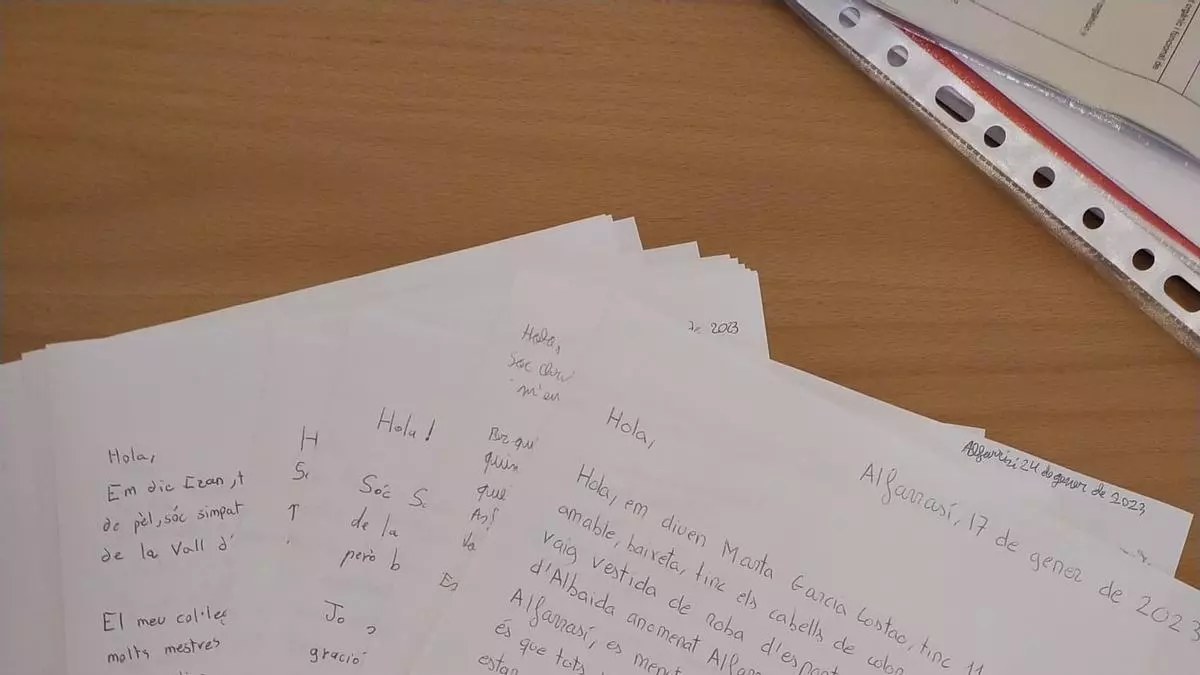 Hola,
Em dic Izan, t
de pèl, sóc simpat
de la Vall d'
El meu col·leg
molts mestres
H
S
T
Hola!
Sóc S
de la
però b
Jo
gració
Hola,
Sóc
m'en
Per què
quin
què
Es
de 2023
Alfarrasí 24 de gener de 2023
Alfarrasí, 17 de gener de 2023
Hola,
Hola, em diuen Marta Garcia Costao, tinc 11
amable, baixeta, tinc els cabells de color
vaig vestida de roba d'esport
d'Albaida anomenat Alfar
Alfarrasí, es menut
és que tots
estan
orgànic i funcional de